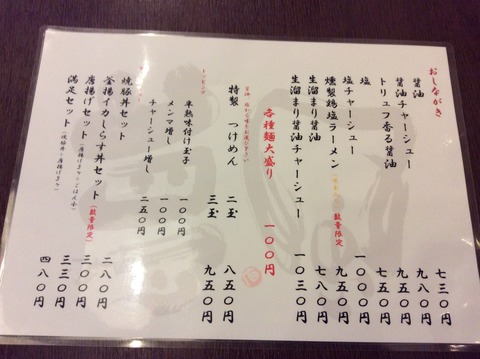 おしながき
醤油 七三〇円
醤油チャーシュー 九八〇円
トリュフ香る醤油 九五〇円
塩 七五〇円
塩チャーシュー 一〇〇〇円
燻製鶏塩ラーメン 数量限定 九五〇円
生溜まり醤油 七八〇円
生溜まり醤油チャーシュー 一〇三〇円
各種麺大盛り 一〇〇円
特製 つけめん 二玉 八五〇円
三玉 九五〇円
トッピング
半熟味付け玉子 一〇〇円
メンマ増し 一〇〇円
チャーシュー増し 二五〇円
焼豚丼セット 二八〇円
釜揚イカしらす丼セット(数量限定) 三〇〇円
唐揚げセット 三三〇円
満足セット 四八〇円